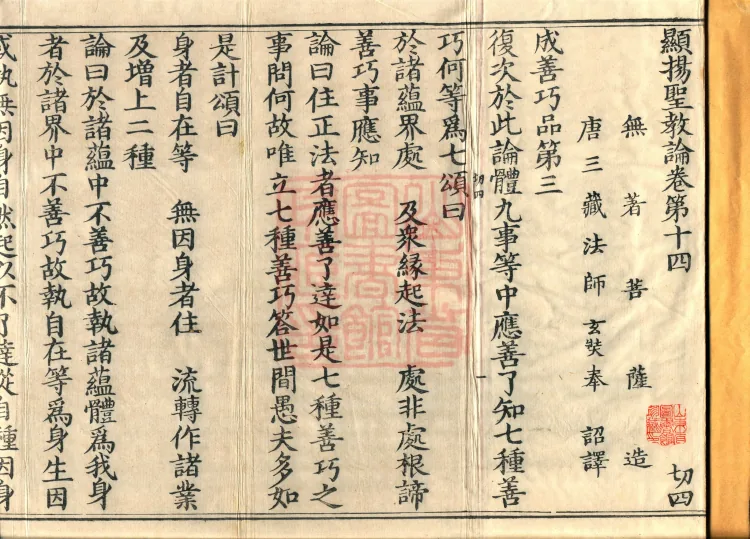 顯揚聖教論卷第十四 切四
無著菩薩造
唐三藏法師玄奘奉 詔譯
成善巧品第三
復次於此論體九事等中應善了知七種善
切四 一
巧何等爲七頌曰
於諸蘊界處 及衆緣起法 處非處根諦
善巧事應知
論曰住正法者應善了達如是七種善巧之
事問何故唯立七種善巧答世間愚夫多如
是計頌曰
身者自在等 無因身者住 流轉作諸業
及增上二種
論曰於諸蘊中不善巧故執諸蘊體爲我身
者於諸界中不善巧故執自在等爲身生因
或執無因身自然起以不了達從自種因身